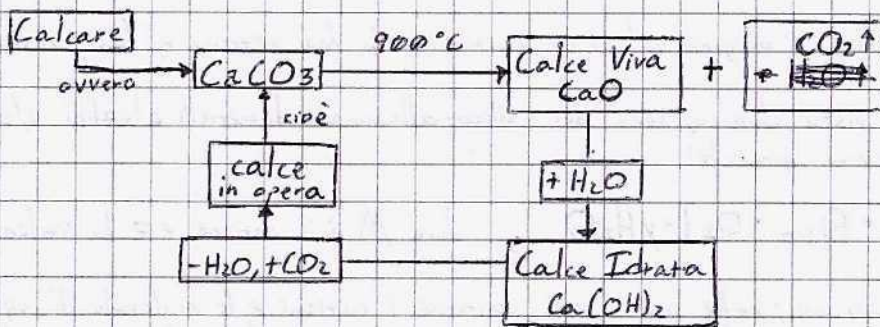 Calcare
ovvero
CaCO3
900°C
Calce Viva
CaO
+
CO2↑
cioè
calce
in opera
+ H2O
-H2O, +CO2
Calce Idrata
Ca(OH)2